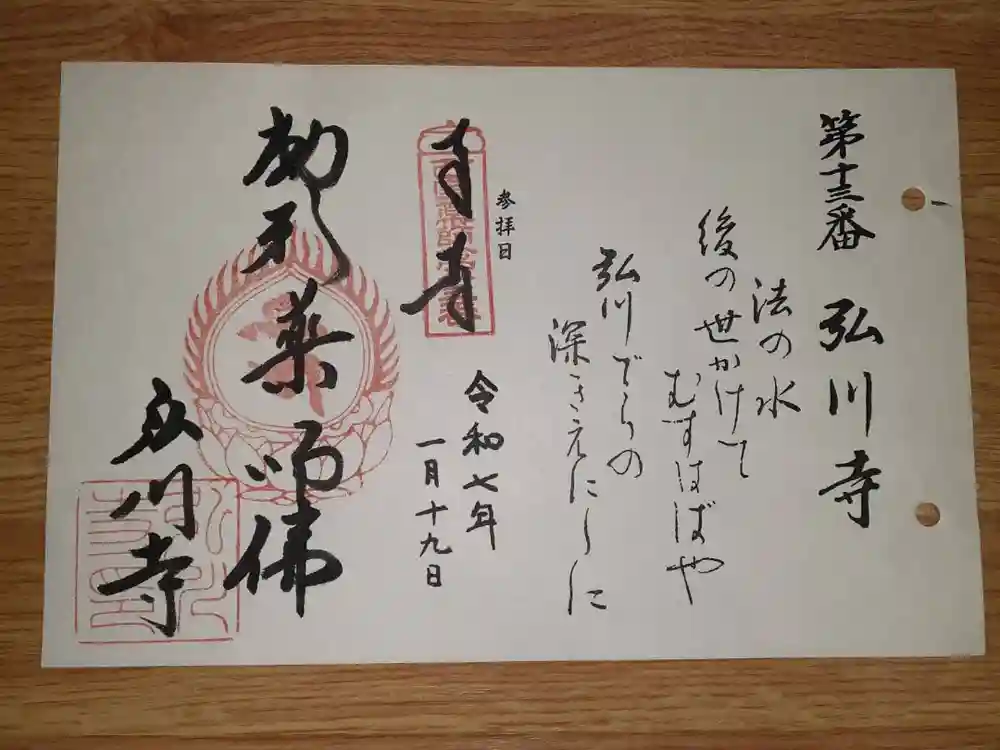 第十三番 弘川寺
法の水
後の世かけて
むすはばや
弘川でらの
深きえにしに
参拝日
奉拝
令和七年
一月十九日
薬師佛
弘川寺